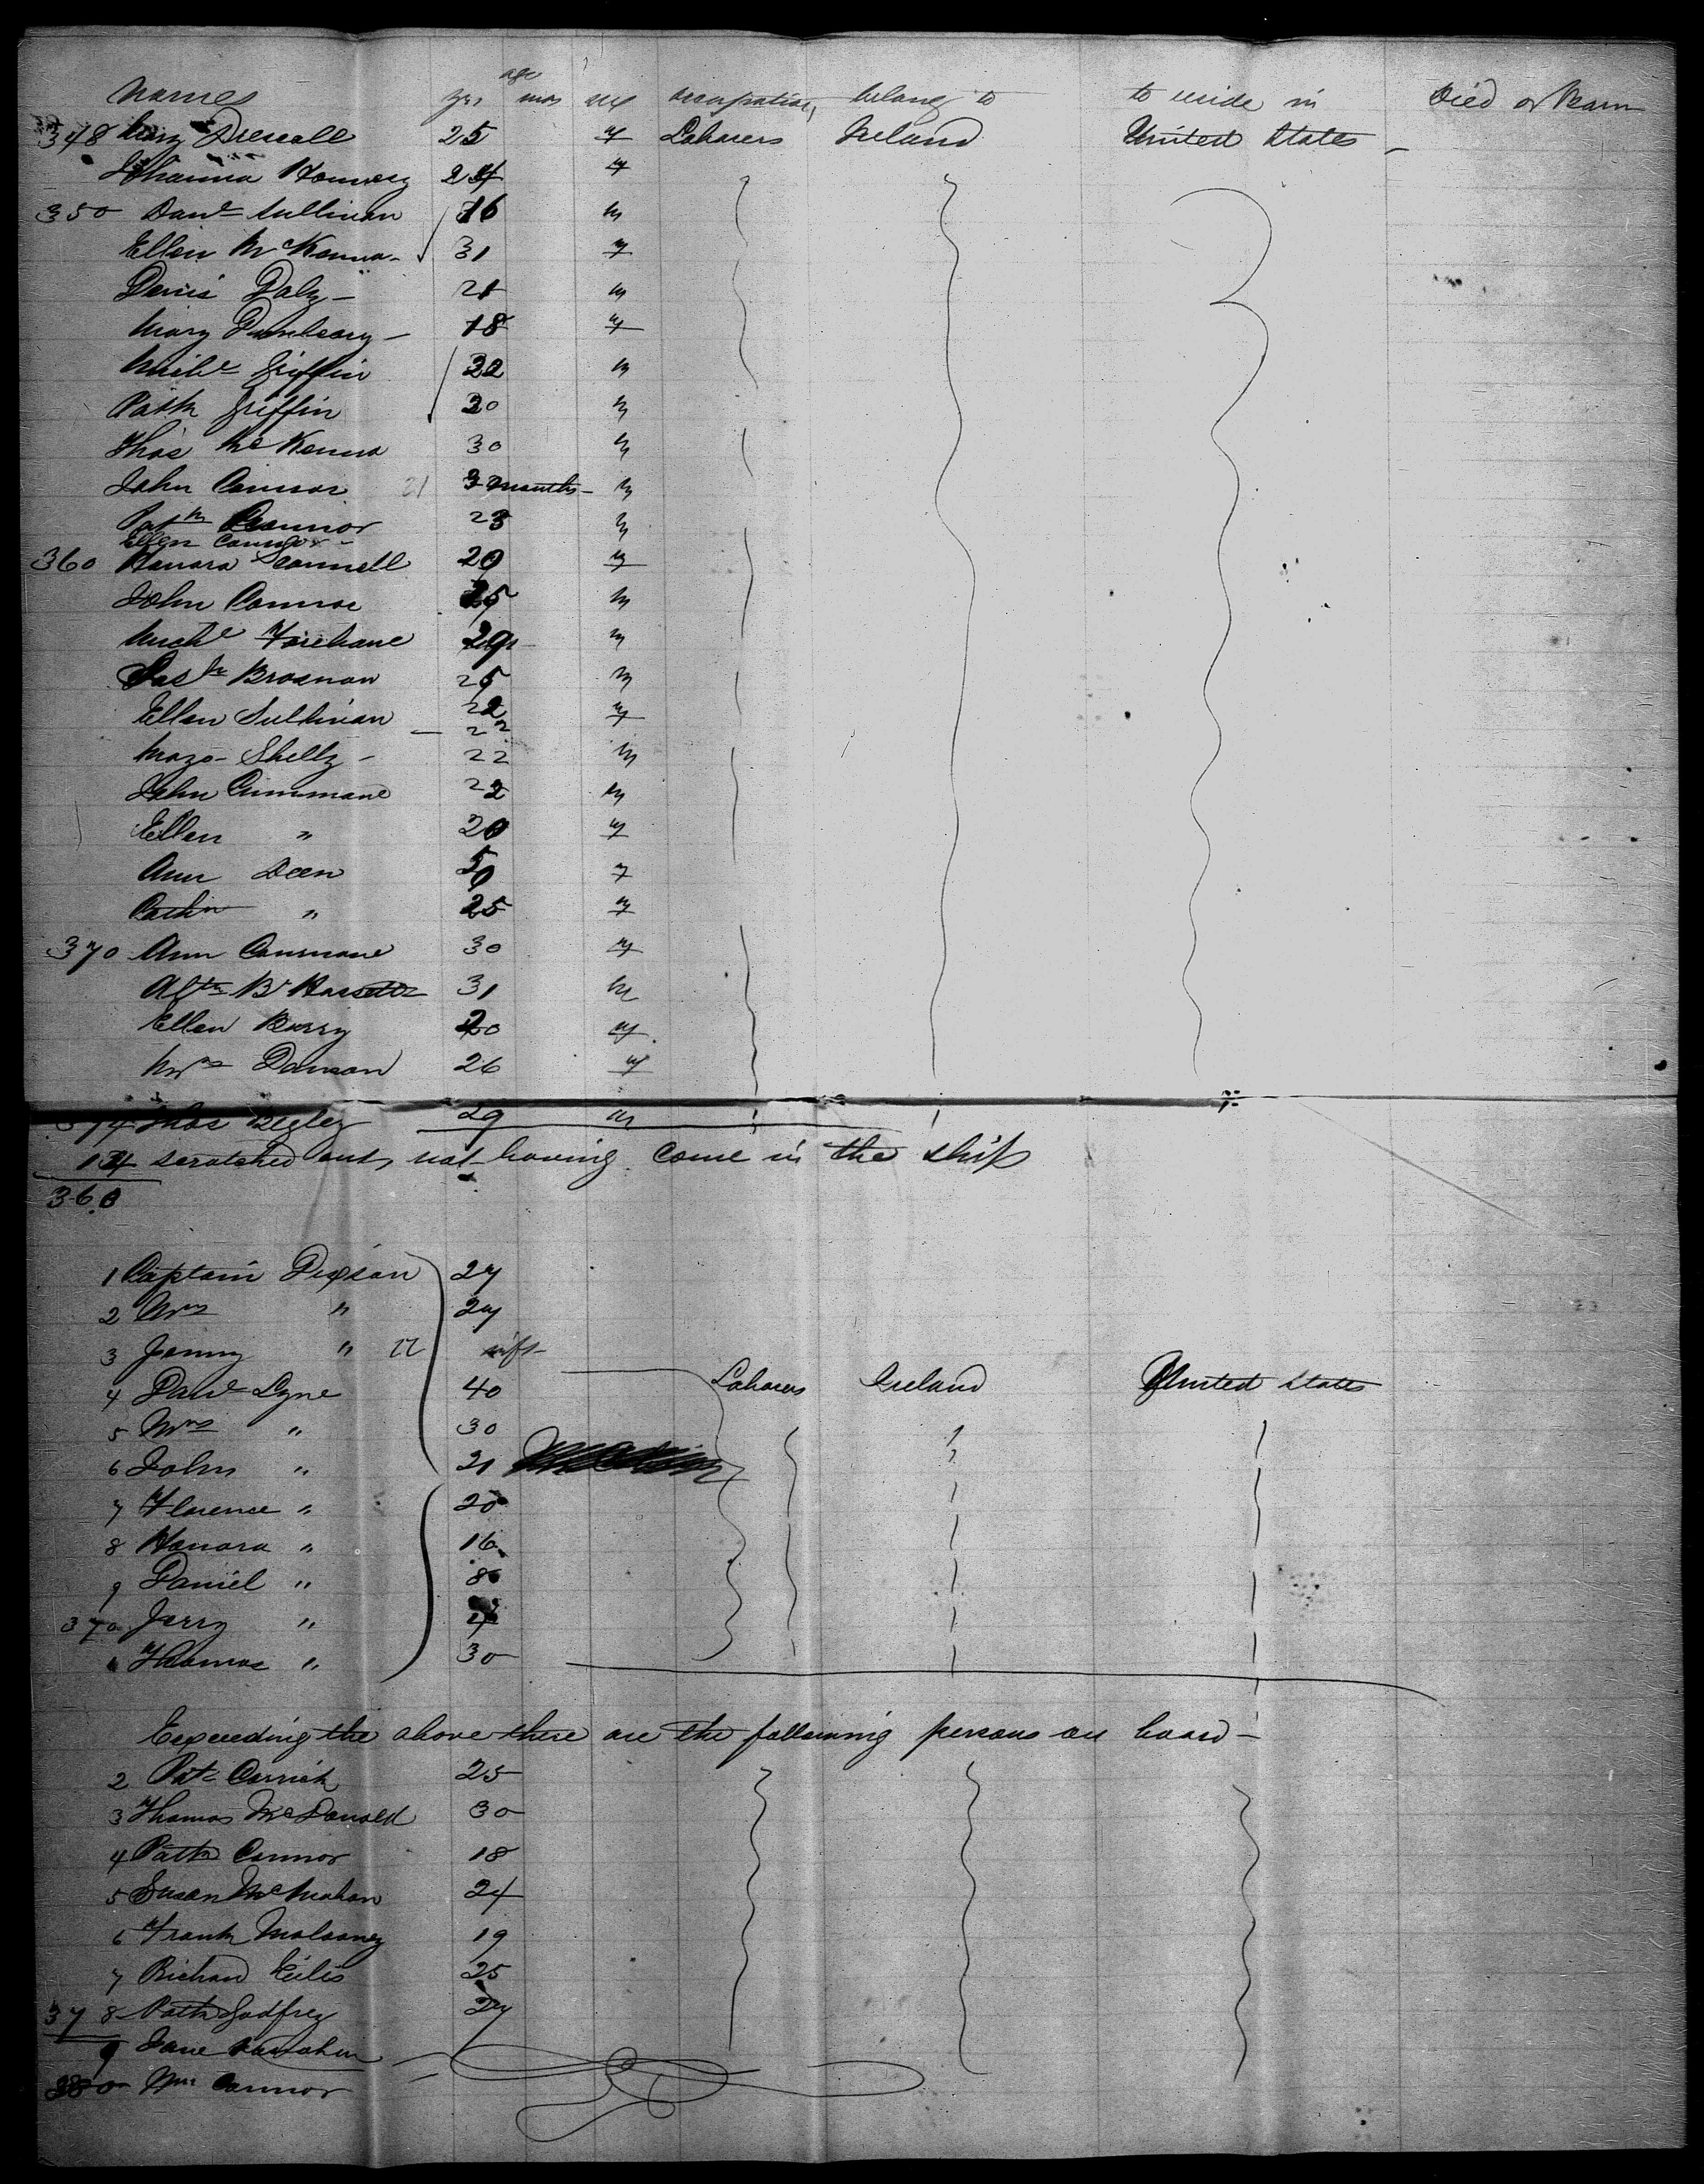 names age yrs mos sex occupation, belong to to reside in Died or Born
348 Mary Driscoll 25 f Laborers Ireland United States
Johanna 24 f
350 Danl Sullivan 16 m
Ellen McKenna 31 f
Denis Daly 21 m
Mary Dunleavy 18 f
Michl Griffin 22 m
Patk Griffin 20 m
Thos McKenna 30 m
John Connor 21 3 months m
Patk Connor 23 m
Ellen Connor
360 Hanora Connell 20 f
John Connor 25 m
Michl 29 m
Brosnan 25 m
Ellen Sullivan 22 f
22
Shelly 22 m
John Cummane 22 m
Ellen " 20 f
Ann Deen 50 f
" 25 f
370 Ann Cummane 30 f
31 m
Ellen Barry 20 f
Mrs Dawson 26 f
374 Thos Begley 29 m
14 scratched out, not having come in the ship
360
1 Captain Dixson 27
2 Mrs " 27
3 Jenny " inft
4 Danl Lyne 40 Laborers Ireland United States
5 Mrs " 30
6 John " 21
7 Florence " 20
8 Hanora " 16
9 Daniel " 8
370 Jerry "
1 Thomas " 30
Exceeding the above there are the following persons on board -
2 Pat Carrick 25
3 Thomas McDonald 30
4 Patk Connor 18
5 Susan McMahon 24
6 Frank Malooney 19
7 Richard Eilis 25
378 Patk Godfrey 27
9 Jane
380 Wm Connor